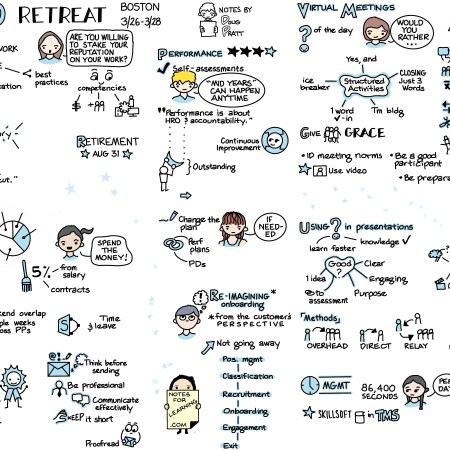 RETREAT
BOSTON
3/26-3/28
ARE YOU WILLING
TO STAKE YOUR
REPUTATION
ON YOUR WORK?
WORK
best
practices
competencies
$
RETIREMENT
AUG 31
NOTES BY
DOUG
PRATT
PERFORMANCE
Self-assessments
"MID YEARS"
CAN HAPPEN
ANYTIME
"Performance is about
HRO & accountability."
Continuous
Improvement
Outstanding
VIRTUAL MEETINGS
? of the day
WOULD
YOU
RATHER...
Yes, and
ice
breaker
Structured
Activities
CLOSING
Just 3
Words
1 word
✓-in
Tm bldg
GIVE GRACE
• ID meeting norms
Use video
• Be a good
participant
• Be prepare
cut."
SPEND
THE
MONEY!
5% from
salary
contracts
end overlap
ple weeks
oss PPs
Time
& leave
Think before
sending
Be professional
Communicate
effectively
KEEP it short
Proofread
Change the
plan
Perf
plans
PDs
IF
NEED-
ED
RE-IMAGINING *
onboarding
*from the customer's
PERSPECTIVE
Not going away
Pos. mgmt
Classification
Recruitment
Onboarding
Engagement
Exit
NOTES
FOR
LEARNING
.COM
USING ? in presentations
learn faster
knowledge ✓
Good
?
Clear
1 idea
Engaging
to
assessment
Purpose
"Methods"
OVERHEAD
DIRECT
RELAY
MGMT
86,400
SECONDS
PER
DAY
SKILLSOFT in TMS